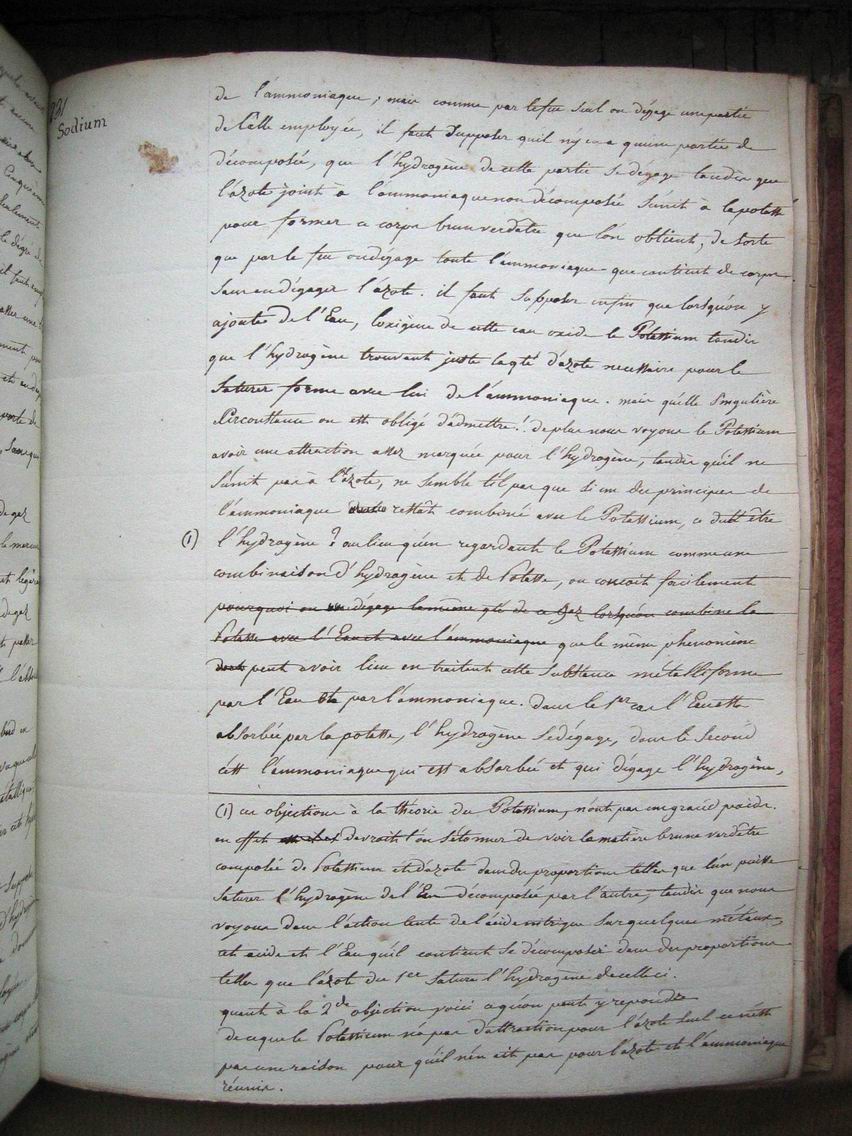 231
Sodium
de l'ammoniaque ; mais comme par le feu seul on dégage une partie
de celle employée, il faut supposer quil ny en a quune partie de
décomposée, que l'hydrogène de cette partie se dégage tandis que
l'azote joint à l'ammoniaque non décomposée s'unit à la potasse
pour former ce corps brun verdatre que l'on obtient, de sorte
que par le feu on dégage toute l'ammoniaque que contient ce corps
sans en dégager l'azote. il faut supposer enfin que lorsqu'on y
ajoute de l'Eau, l'oxigène de cette eau oxide le Potassium tandis
que l'hydrogène trouvant juste la qté d'azote necessaire pour le
saturer forme avec lui de l'ammoniaque. mais qu'elle singulière
circonstance on est obligé d'admettre ! de plus nous voyons le Potassium
avoir une attraction assez marquée pour l'hydrogène, tandis qu'il ne
s'unit pas à l'azote, ne semble t'il pas que si un des principes de
l'ammoniaque restât combiné avec le Potassium, ce dut être
(1) l'hydrogène ? au lieu qu'en regardant le Potassium comme une
combinaison d'hydrogène et de Potasse, on concoit facilement
pourquoi on dégage la même qté de ce gaz lorsqu'on combine la
Potasse avec l'Eau et avec l'ammoniaque que le même phenomène
peut avoir lieu en traitant cette substance métalliforme
par l'Eau et par l'ammoniaque. dans le 1er cas l'Eau est
absorbée par la potasse, l'hydrogène se dégage, dans le second
cest l'ammoniaque qui est absorbée et qui dégage l'hydrogène,
(1) ces objections à la théorie du Potassium, n'ont pas un grand poids.
en effet devroit l'on s'étonner de voir la matiere brune verdâtre
composée de Potassium et d'azote dans des proportions telles que l'un puisse
saturer l'hydrogène de l'Eau décomposée par l'autre, tandis que nous
voyons dans l'action lente de l'acide nitrique sur quelques métaux,
cet acide et l'Eau qu'il contient se décomposer dans des proportions
telles que l'azote du 1er sature l'hydrogène de celle ci.
quant à la 2de objection voici ce qu'on peut y repondre
de ce que le Potassium n'a pas d'attraction pour l'azote seul ce n'est
pas une raison pour qu'il n'en ait pas pour l'azote et l'ammoniaque
réunis.